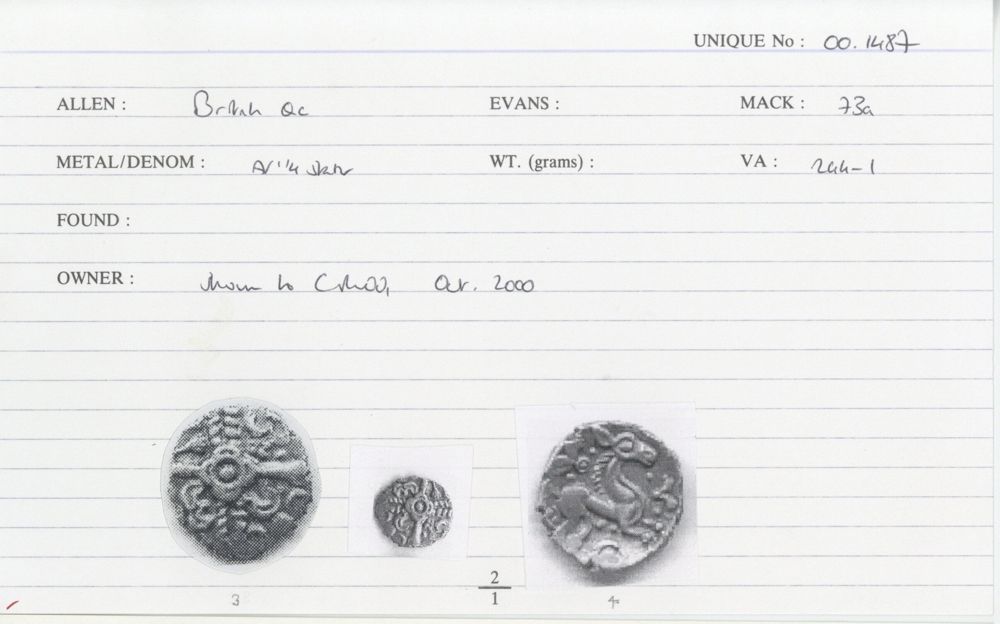 UNIQUE No : 00.1487
ALLEN : British Qc EVANS : MACK : 73a
METAL/DENOM : AV 1/4 stater WT. (grams) : VA : 244-1
FOUND :
OWNER : shown to Oct. 2000
2
1
3 4